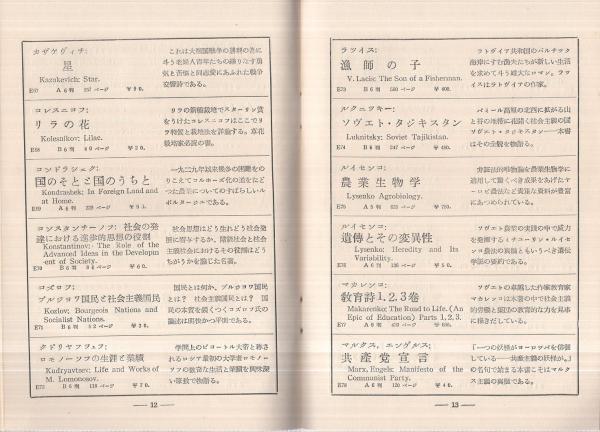 カザケヴィチ:
星
Kazakevich: Star.
E67 A6判 257ページ ¥90.
これは大祖国戦争の勝利の為に
斗う老婦人青年たちの織りなす勇
気と苦悩と同志愛にあふれた戦争
交響詩である。
コレスニコフ:
リラの花
Kolesnikov: Lilac.
E68 B6判 60ページ ¥20.
リラの新種栽培でスターリン賞
をうけたコレスニコフはここでリ
ラ種質と栽培法を詳論する。草花
栽培家必読の書。
コンドラシェク:
国のそとと国のうちと
Kondrashek: In Foreign Land and
at Home.
E69 A6判
一九二九年以来幾多の困難をの
りこえてコルホーズ化の道をたど
つた農業についてのすばらしいル
ポルタージュである。
コンスタンチーノフ: 社会の発
達における進歩的思想の役割
Konstantinov: The Role of the
Advanced Ideas in the Develop-
ment of Society.
E70 B6判 ¥60.
社会思想はどう生れどう社会発
展に寄与するか、階級社会と社会
主義社会におけるその役割はどう
ちがうかを論じた名著。
コズロフ:
ブルジョワ国民と社会主義国民
Kozlov: Bourgeois Nations and
Socialist Nations.
E71 B6判 52ページ ¥20.
国民とは何か、ブルジョワ国民
とは? 社会主義国民とは? 国
民の本質を鋭くつくコズロフ氏の
論法は明快かつ平明である。
クドリヤフツェフ:
ロモノーソフの生涯と業績
Kudryavtsev: Life and Works of
M. Lomonosov.
E72 A6判 118ページ ¥70.
学問上のピョートル大帝と称さ
れるロシア最初の大学者ロモノー
ソフの数奇な生活と業績を興味深
い筆致で物語る。
— 12 —
ラツイス:
漁師の子
V. Lacis: The Son of a Fisherman.
E73 B6判 ¥400.
ラトヴィア共和国のバルチック
海岸にすむ漁夫たちが新しい生活
を求めて斗う雄大なロマン。ラツ
イスはラトヴィアの作家。
ルクニツキー:
ソヴエト・タジキスタン
Luknitsky: Soviet Tajikistan.
E74 B6判 247ページ
パミール高原の北西に拡がる山
と谷の地帯に花咲く社会主義の国
ソヴエト・タジキスタン——本書
はその全貌を物語る。
ルイセンコ:
農業生物学
Lysenko Agrobiology.
E75 A5判 ¥750.
弁証法的唯物論を農業生物学に
適用して驚くべき成果をあげたヤ
ロビ農法など貴重な資料が豊富
にあつめられている。
ルイセンコ:
遺傳とその変異性
Lysenko: Heredity and Its
Variability.
E76 A6判 136ページ ¥50.
ソヴエト農業の実践の中で威力
を発揮するミチューリン・ルイセ
ンコ農法の真髄ともいうべき遺伝
学説の要約である。
マカレンコ:
教育詩 1.2.3巻
Makarenko: The Road to Life. (An
Epic of Education) Parts 1.2.3.
E77 A6判
ソヴエトの卓越した作家教育家
マカレンコは本書の中で社会主義
的労働と集団の教育的な力を見事
に描きだしている。
マルクス, エンゲルス:
共産党宣言
Marx, Engels: Manifesto of the
Communist Party.
E78 A6判 120ページ ¥40.
「一つの妖怪がヨーロッパを俳徊
している——共産主義の妖怪が。」
の名句で始まる本書こそはマルク
ス主義の真髄である。
— 13 —